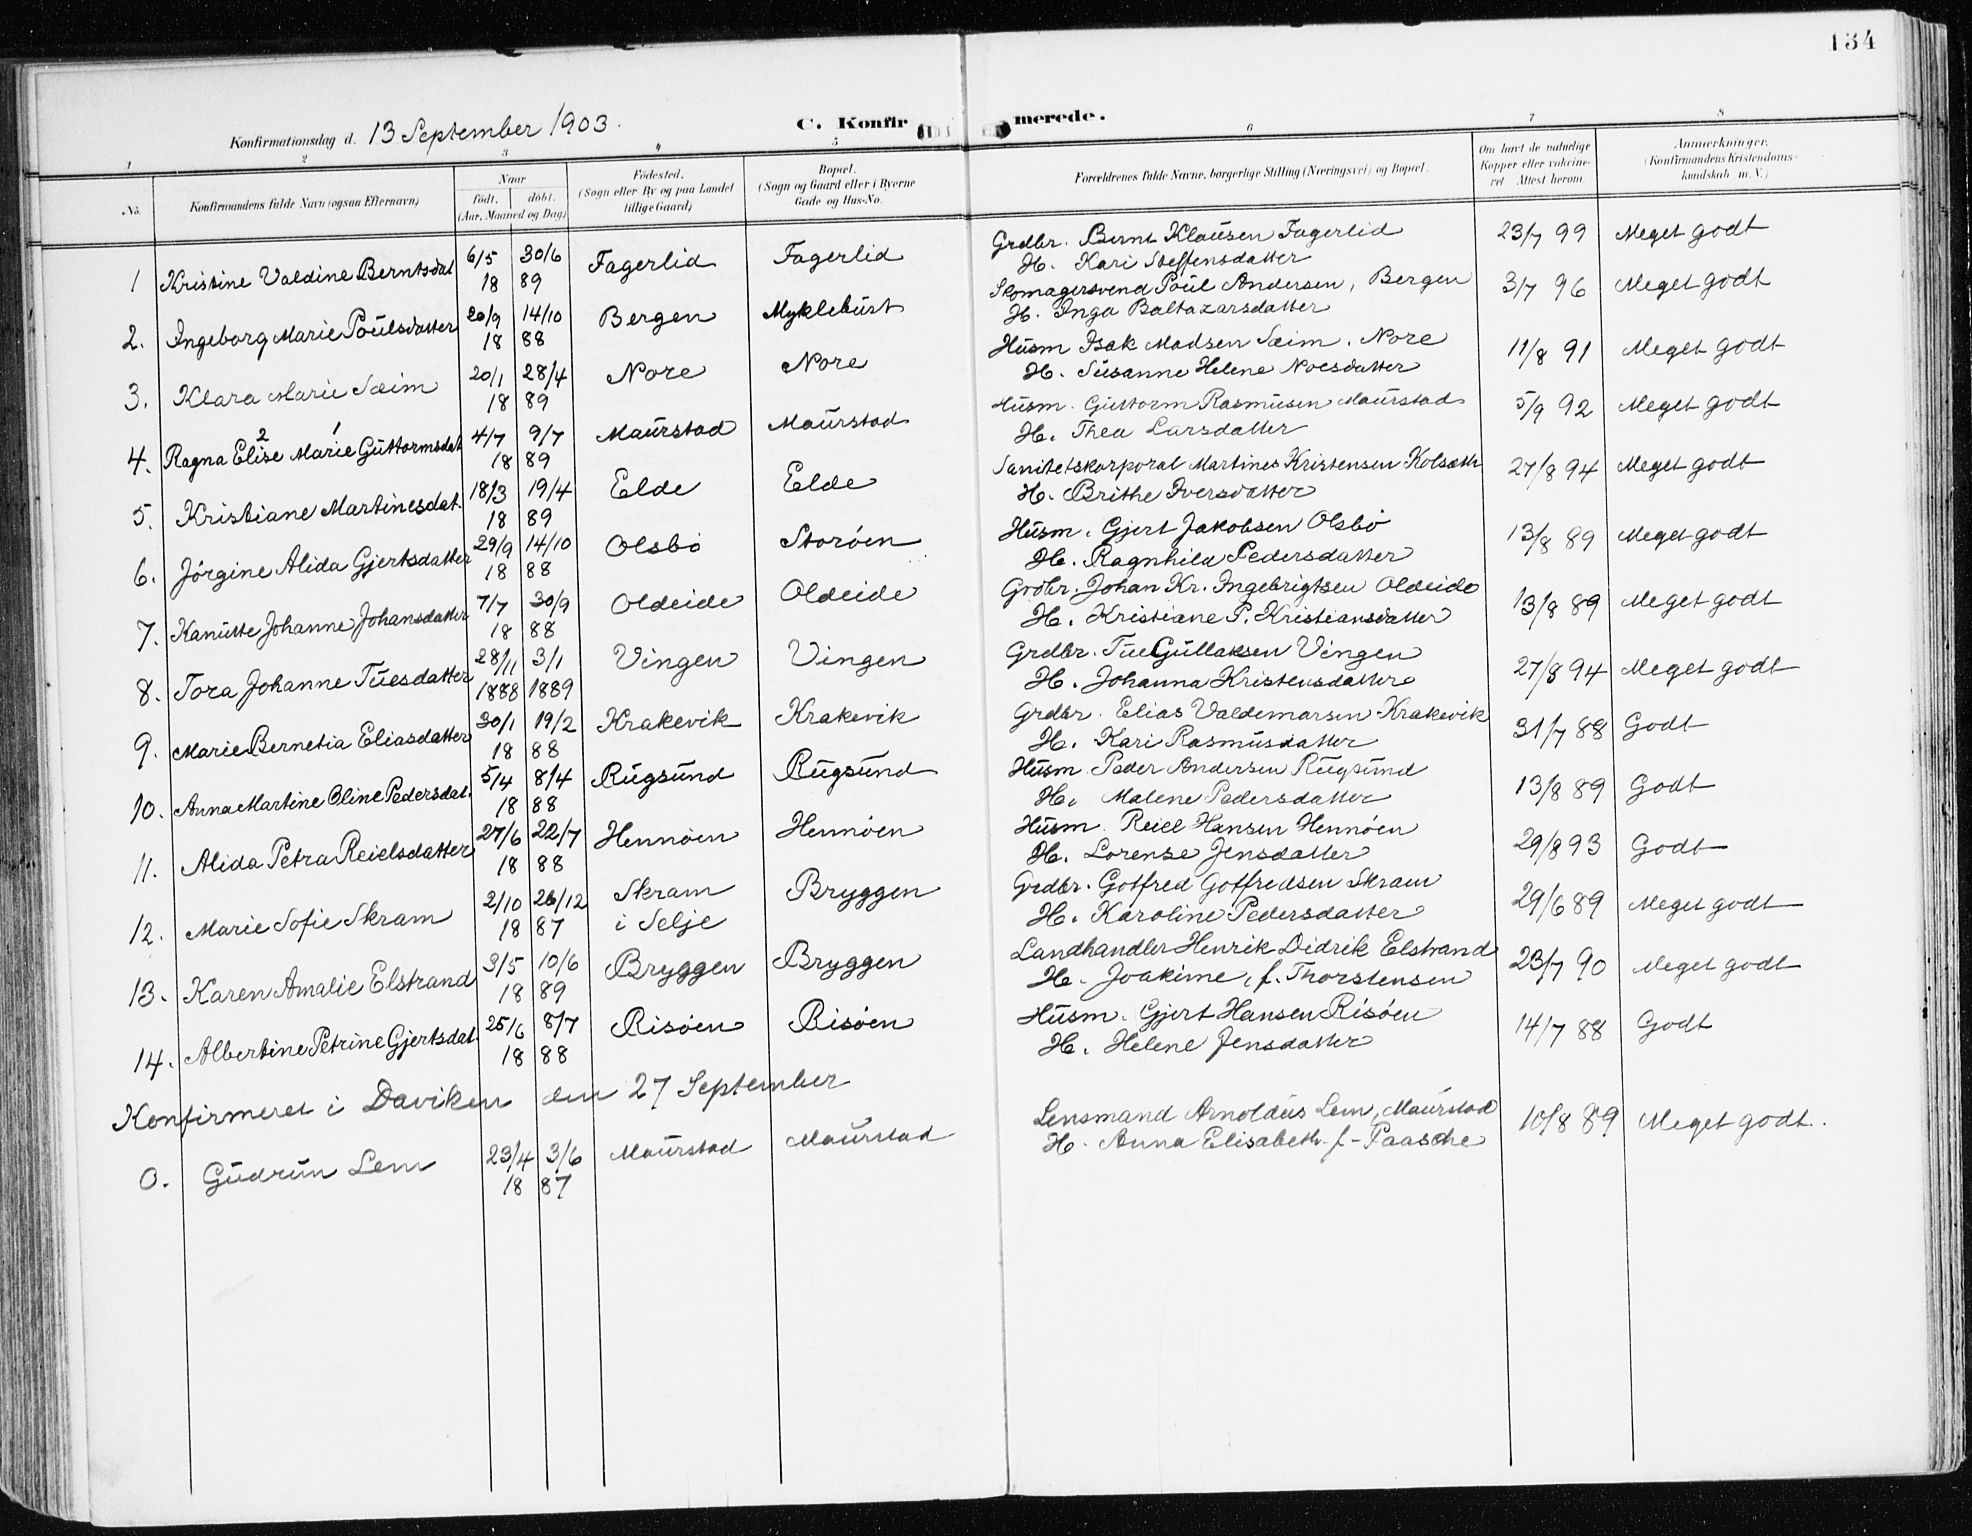 134
C. Konfirmerede.
Konfirmationsdag d. 13 September 1903.
1 2 3 4 5 6 7 8
No. Konfirmandens fulde Navn (ogsaa Efternavn) Naar født. døbt. (Aar, Maaned og Dag) Fødested. (Sogn eller By og paa Landet tillige Gaard) Bopæl. (Sogn og Gaard eller i Byerne Gade og Hus-No. Forældrenes fulde Navne, borgerlige Stilling (Næringsvei) og Bopæl. Om havt de naturlige Kopper eller vakcineret Attest herom. Anmærkninger. (Konfirmandens Kristendomskundskab m. V.)
1 Kristine Valdine Berntsdat 6/5 30/6 Fagerlid Fagerlid Grdbr. Bernt Klausen Fagerlid 23/7 99 Meget godt
18 89 H. Kari Steffensdatter
2. Ingeborg Marie Poulsdatter 20/9 14/10 Bergen Myklebust Skomagersvend Poul Andersen, Bergen 3/7 96 Meget godt
18 88 H. Inga Baltazarsdatter
3. Klara Marie Sæim 20/1 28/4 Nore Nore Husm Isak Madsen Sæim. Nore 11/8 91 Meget godt
18 89 H. Susanne Helene Noesdatter
4. Ragna Elise 2 Marie 1 Guttormsdat 4/7 9/7 Maurstad Maurstad Husm. Guttorm Rasmusen Maurstad 5/9 92 Meget godt
18 89 H. Thea Larsdatter
5. Kristiane Martinesdat. 18/3 19/4 Elde Elde Sanitetskorporal Martines Kristensen Kolsæth 27/8 94 Meget godt
18 89 H. Brithe Iversdatter
6. Jörgine Alida Gjertsdatter 29/9 14/10 Olsbö Storöen Husm. Gjert Jakobsen Olsbö 13/8 89 Meget godt
18 88 H. Ragnhild Pedersdatter
7. Kanutte Johanne Johansdatter 7/7 30/9 Oldeide Oldeide Grdbr. Johan Kr. Ingebrigtsen Oldeide 13/8 89 Meget godt
18 88 H. Kristiane P. Kristiansdatter
8. Tora Johanne Tuesdatter 28/11 3/1 Vingen Vingen Grdbr. Tue Gullaksen Vingen 27/8 94 Meget godt
1888 1889 H. Johanna Kristensdatter
9. Marie Bernetia Eliasdatter 30/1 19/2 Krakevik Krakevik Grdbr. Elias Valdemarsen Krakevik 31/7 88 Godt
18 88 H. Kari Rasmusdatter
10. Anna Martine Oline Pedersdat. 5/4 8/4 Rugsund Rugsund Husm Peder Andersen Rugsund 13/8 89 Godt
18 88 H. Malene Pedersdatter
11. Alida Petra Reielsdatter 27/6 22/7 Hennöen Hennöen Husm. Reiel Hansen Hennöen 29/8 93 Godt
18 88 H. Lorense Jensdatter
12. Marie Sofie Skram 2/10 26/12 Skram Bryggen Grdbr. Gotfred Gotfredsen Skram 29/6 89 Meget godt
18 87 i Selje H. Karoline Pedersdatter
13. Karen Amalie Elstrand 3/5 10/6 Bryggen Bryggen Landhandler Henrik Didrik Elstrand 23/7 90 Meget godt
18 89 H. Joakime, f. Thorstensen
14. Albertine Petrine Gjertsdat. 25/6 8/7 Risöen Risöen Husm. Gjert Hansen Risöen 14/7 88 Godt
18 88 H. Helene Jensdatter
Konfirmeret i Daviken den 27 September
0. Gudrun Lem 23/4 3/6 Maurstad Maurstad Lensmand Arnoldus Lem, Maurstad 10/8 89 Meget godt.
18 87 H. Anna Elisabeth f. Paasche